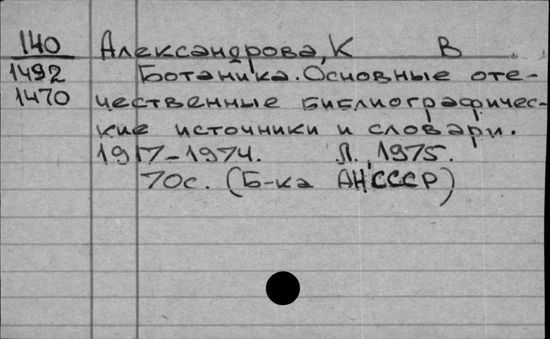 140 Александрова, К В
1492 Ботаника. Основные оте-
1470 чественные библиографичес-
кие источники и словари.
1917-1974. Л., 1975.
70с. (Б-ка АН СССР)